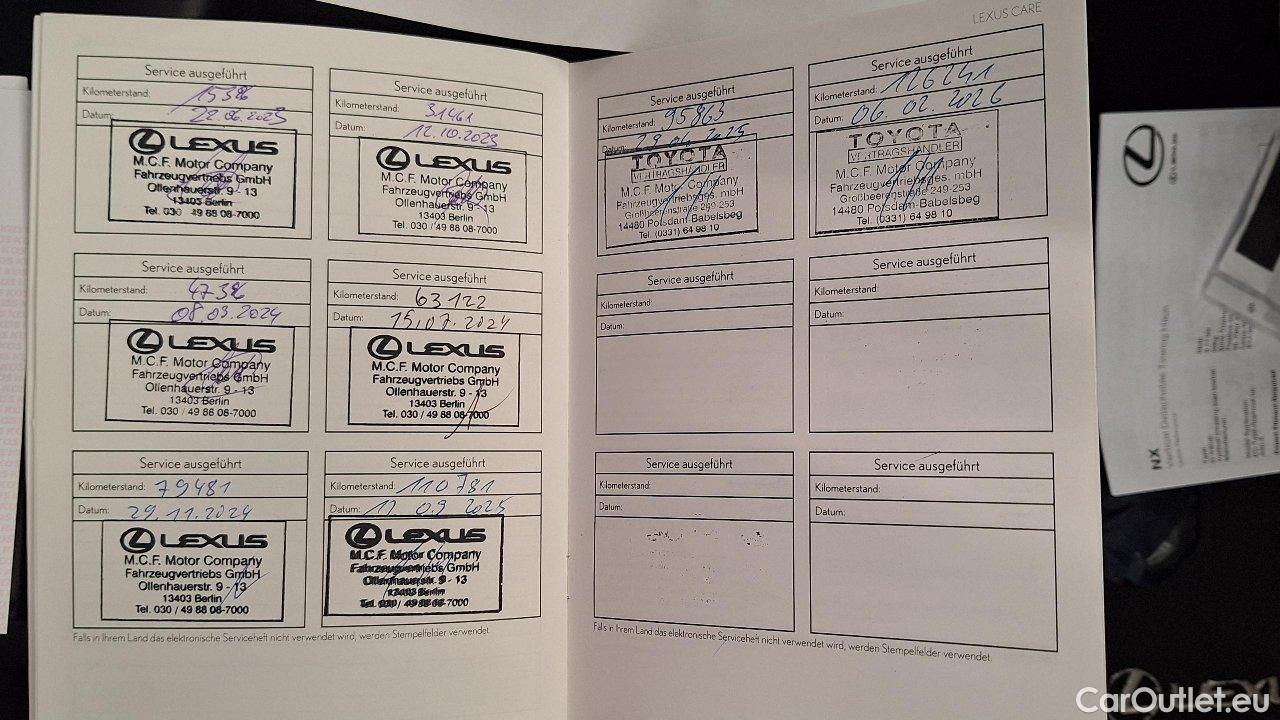 LEXUS CARE
Service ausgeführt
Kilometerstand:
Datum: 22.06.2023
LEXUS
M.C.F. Motor Company
Fahrzeugvertriebs GmbH
Ollenhauerstr. 9 - 13
13403 Berlin
Tel. 030 / 49 88 08-7000
Service ausgeführt
Kilometerstand: 31461
Datum: 12.10.2023
LEXUS
M.C.F. Motor Company
Fahrzeugvertriebs GmbH
Ollenhauerstr. 9 - 13
13403 Berlin
Tel. 030 / 49 88 08-7000
Service ausgeführt
Kilometerstand:
Datum: 08.03.2024
LEXUS
M.C.F. Motor Company
Fahrzeugvertriebs GmbH
Ollenhauerstr. 9 - 13
13403 Berlin
Tel. 030 / 49 88 08-7000
Service ausgeführt
Kilometerstand: 63122
Datum: 15.07.2024
LEXUS
M.C.F. Motor Company
Fahrzeugvertriebs GmbH
Ollenhauerstr. 9 - 13
13403 Berlin
Tel. 030 / 49 88 08-7000
Service ausgeführt
Kilometerstand: 79481
Datum: 29.11.2024
LEXUS
M.C.F. Motor Company
Fahrzeugvertriebs GmbH
Ollenhauerstr. 9 - 13
13403 Berlin
Tel. 030 / 49 88 08-7000
Service ausgeführt
Kilometerstand: 110781
Datum: 17 09 2025
LEXUS
M.C.F. Motor Company
Fahrzeugvertriebs GmbH
Ollenhauerstr. 9 - 13
13403 Berlin
Tel. 030 / 49 88 08-7000
Falls in Ihrem Land das elektronische Serviceheft nicht verwendet wird, werden Stempelfelder verwendet.
Service ausgeführt
Kilometerstand: 95863
Datum: 29.04.2025
TOYOTA
VERTRAGSHÄNDLER
M.C.F. Motor Company
Fahrzeugvertriebsges. mbH
Großbeerenstraße 249-253
14480 Potsdam-Babelsbeg
Tel. (0331) 64 98 10
Service ausgeführt
Kilometerstand: 126241
Datum: 06.02.2026
TOYOTA
VERTRAGSHÄNDLER
M.C.F. Motor Company
Fahrzeugvertriebsges. mbH
Großbeerenstraße 249-253
14480 Potsdam-Babelsbeg
Tel. (0331) 64 98 10
Service ausgeführt
Kilometerstand:
Datum:
Service ausgeführt
Kilometerstand:
Datum:
Service ausgeführt
Kilometerstand:
Datum:
Service ausgeführt
Kilometerstand:
Datum:
Falls in Ihrem Land das elektronische Serviceheft nicht verwendet wird, werden Stempelfelder verwendet.
NX
CarOutlet.eu